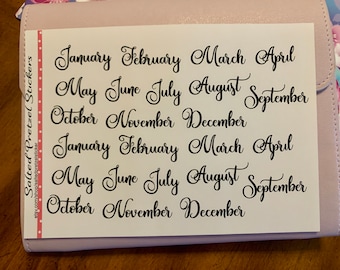 Salted Pretzel Stickers
January February March April
May June July August September
October November December
January February March April
May June July August September
October November December